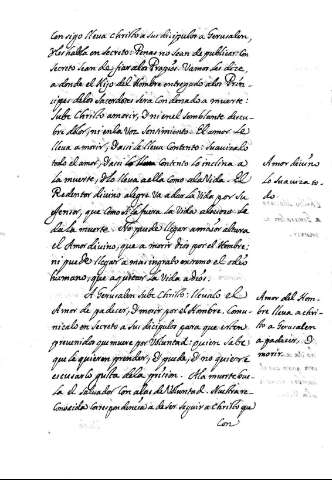 Consigo lleva Christo a sus discipulos a Gerusalen,
y les habla en Secreto: Penas no sean de publicar: Con
Secreto sean de fiar alos Amigos. Vamos les dize,
a donde el Hijo del Hombre entregado alos Prin-
cipes delos Sacerdotes sera Condenado a muerte:
Sube Christo a morir, y ni en el Semblante descu-
bre dolor, ni en la Voz Sentimiento. El amor le
lleva a morir, y asi le lleva Contento: Suavizalo
todo el amor, y asi Contento lo inclina a
la muerte, y lo lleva a ella Como ala Vida. El
Redentor divino alegre va a dar la Vida por Su
Señor, que Como si la fuera la Vida
da la muerte. No puede llegar a mas altura
el Amor divino, que a morir dios por el Hombre:
ni puede llegar a mas ingrato extremo el odio
humano, que a quitar la Vida a dios.
A Gerusalen Sube Christo: llevalo el
Amor de padecer, y morir por el Hombre. Comu-
nicalo en Secreto a Sus discipulos para que esten
prevenidos que muere por Voluntad: quien Sabe
que le quieren prender, y puede, y no quiere
escusarlo gusta dela prision. Ala muerte bue-
la el Salvador Con alas de Voluntad. Nuestra re-
Conocida Correspondencia a de ser seguir a Christo que
Con
Amor divino
lo suaviza to-
do
Amor del Hom-
bre lleva a Chris-
to a Gerusalen
a padecer, y
morir.